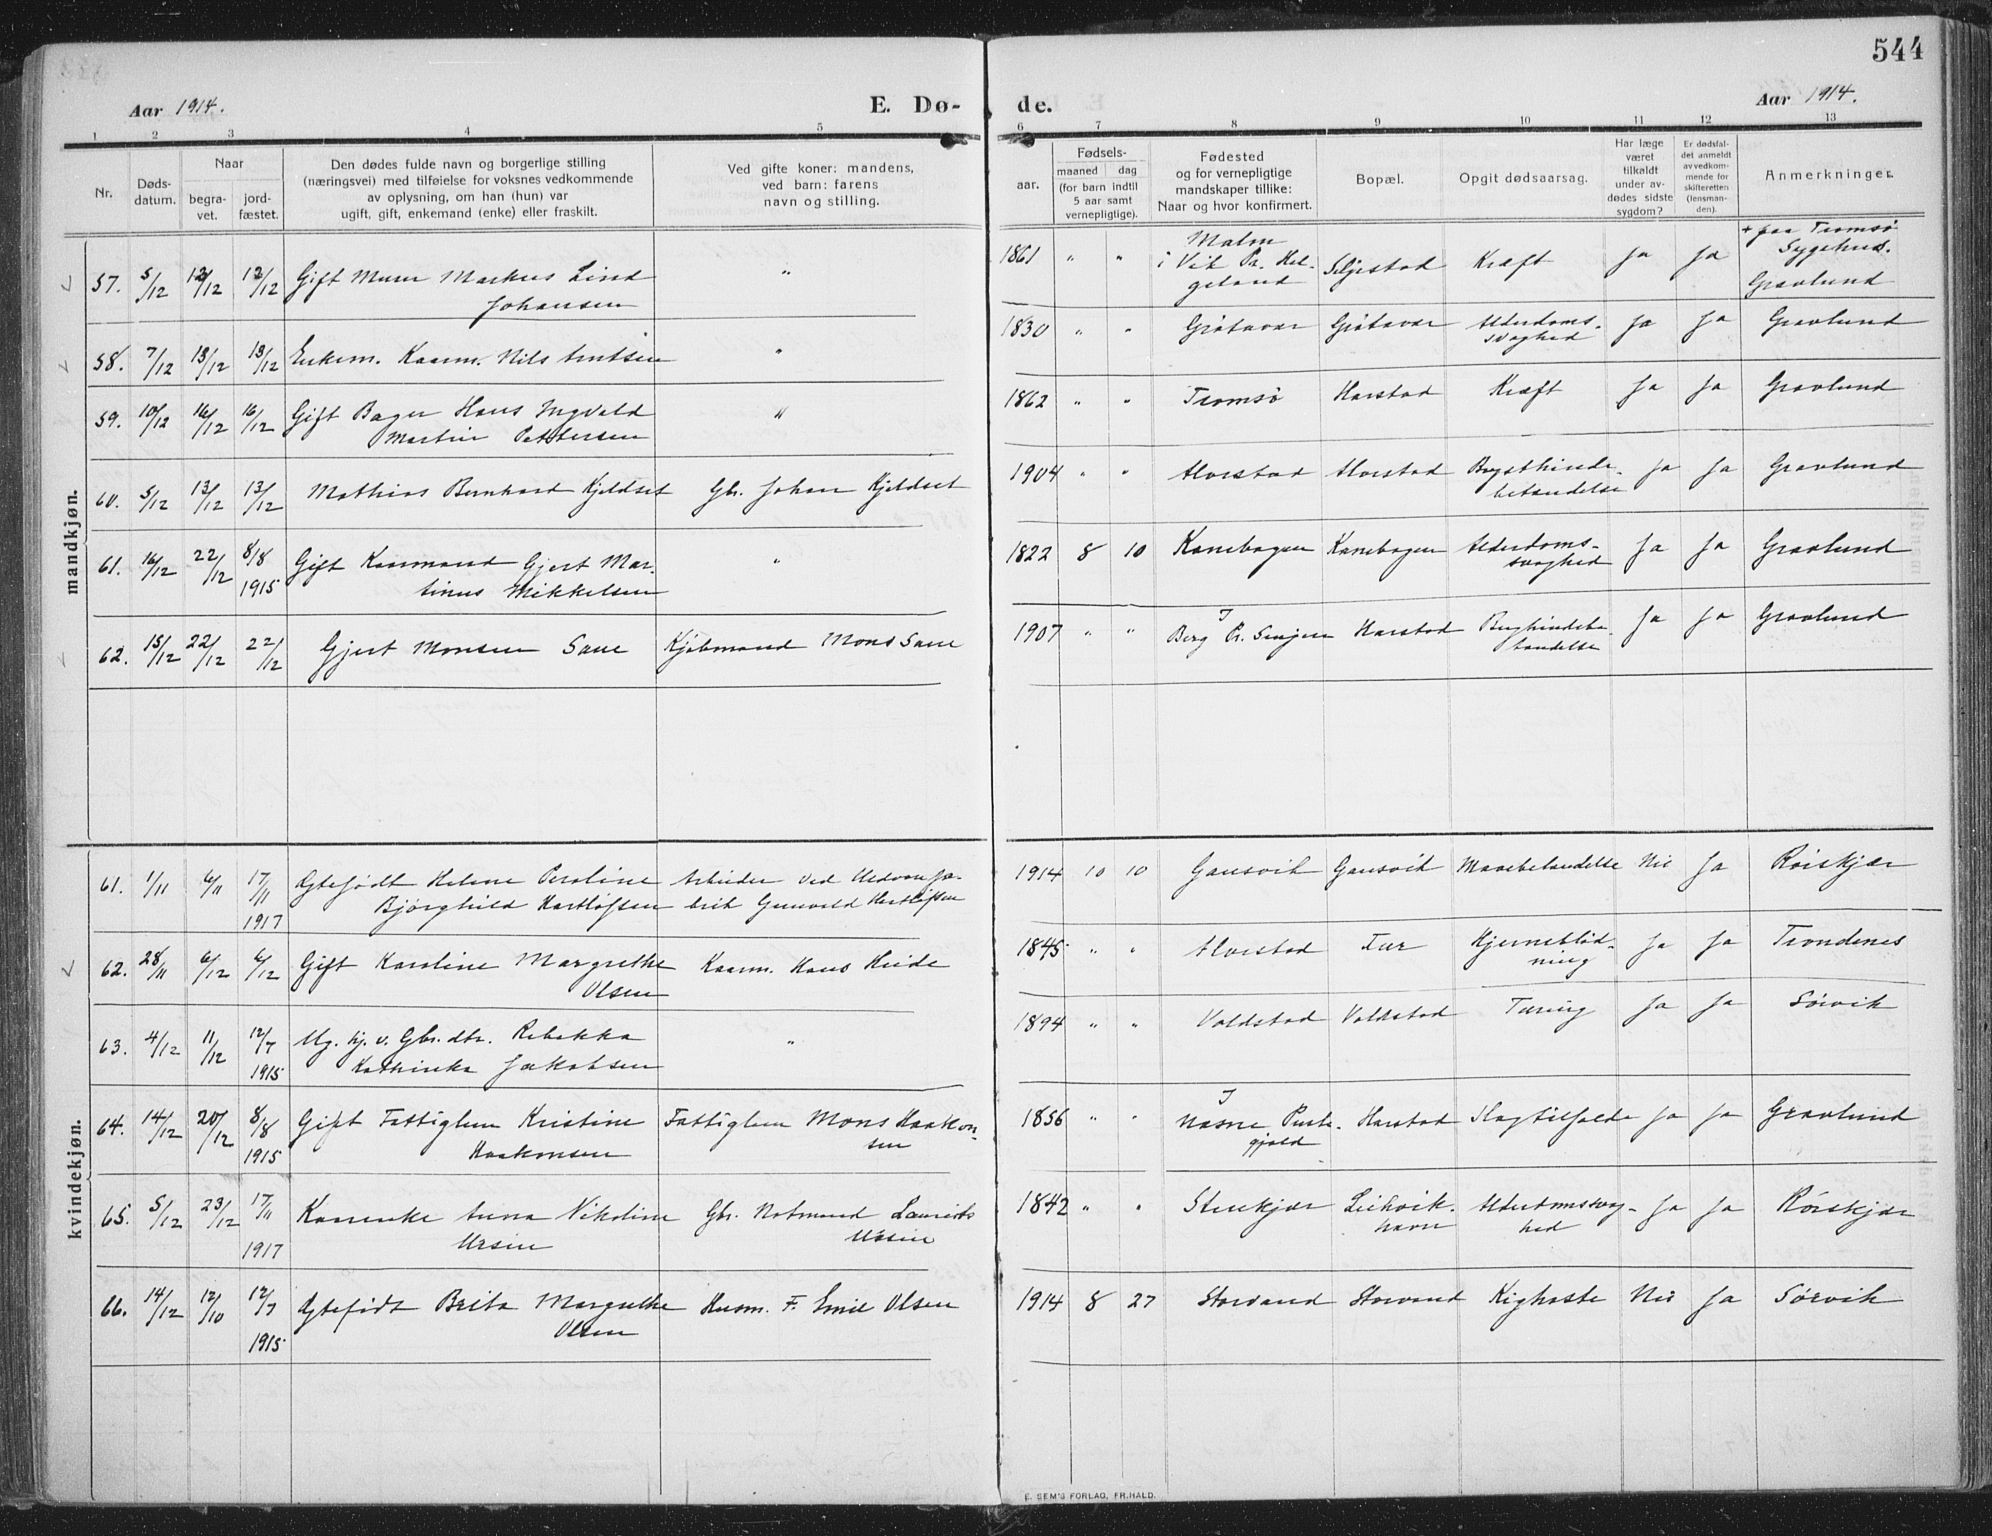 544
Aar 1914.
E. Dø-
de.
Aar 1914.
1 2 3 4 5 6 7 8 9 10 11 12 13
Nr.
Døds-
datum.
Naar
begra-
vet.
jord-
fæstet.
Den dødes fulde navn og borgerlige stilling
(næringsvei) med tilføielse for voksnes vedkommende
av oplysning, om han (hun) var
ugift, gift, enkemand (enke) eller fraskilt.
Ved gifte koner: mandens,
ved barn: farens
navn og stilling.
Fødsels-
aar.
maaned dag
(for barn indtil
5 aar samt
vernepligtige).
Fødested
og for vernepligtige
mandskaper tillike:
Naar og hvor konfirmert.
Bopæl.
Opgit dødsaarsag.
Har læge
været
tilkaldt
under av-
dødes sidste
sygdom?
Er dødsfal-
det anmeldt
av vedkom-
mende for
skifteretten
(lensman-
den).
Anmerkninger.
mandkjøn.
57. 5/12 12/12 12/12 Gift Murer Markus Lind
Johansen
" 1861 " " Malm
i Vik Pr. Hel-
geland
Seljestad Kræft Ja Ja + paa Tromsø
Sygehus.
Gravlund
58. 7/12 13/12 13/12 Enkem. Kaarm. Nils Arntsen " 1830 " " Grøtavær Grøtavær Alderdoms-
svaghed
Ja Ja Gravlund
59. 10/12 16/12 16/12 Gift Bager Hans Ingvald
Martin Pettersen
" 1862 " " Tromsø Harstad Kræft Ja Ja Gravlund
60. 5/12 13/12 13/12 Mathias Bernhard Kjeldset Gbr. Johan Kjeldset 1904 " " Alvestad Alvestad Brysthinde-
betændelse
Ja Ja Gravlund
61. 16/12 22/12 8/8
1915
Gift Kaarmand Gjert Mar-
tinus Mikkelsen
" 1822 8 10 Kanebogen Kanebogen Alderdoms-
svaghed
Ja Ja Gravlund
62. 15/12 22/12 22/12 Gjert Monsen Sane Kjøbmand Mons Sane 1907 " " I
Berg Pr. Senjen
Harstad
Ja Ja Gravlund
kvindekjøn.
61. 1/11 6/11 17/11
1917
Ægtefødt Helene Peroline
Bjørghild Hartløfsen
Arbeider ved Uldvarefa-
brik Gunvald Hartløfsen
1914 10 10 Gausvik Gausvik Mavebetændelse Nei Ja Røiskjær
62. 28/11 6/12 6/12 Gift Karoline Margrethe
Olsen
Kaarm. Hans Heide 1845 " " Alvestad Hjerneblød-
ning
Ja Ja Trondenes
63. 4/12 11/12 12/7
1915
Ug. hj. v. Gbr. dtr. Rebekka
Kathinka Jakobsen
" 1894 " " Voldstad Voldstad Tæring Ja Ja Sørvik
64. 14/12 20/12 8/8
1915
Gift Fattiglem Kristine
Haakonsen
Fattiglem Mons Haakon-
sen
1856 " " I
Næsne Preste-
gjeld
Harstad Slagtilfælde Ja Ja Gravlund
65. 5/12 23/12 17/11
1917
Kaarenke Anna Nikoline
Ursin
Gbr. Notmand Laurids
Ursin
1842 " " Stenkjær Leikvik-
havn
Alderdomssvag-
hed
Ja Ja Røiskjær
66. 14/12 12/10 12/7
1915
Ægtefødt Brita Margrethe
Olsen
Husm. F. Emil Olsen 1914 8 27 Storvand Storvand Kighoste Nei Ja Sørvik
E. SEM'S FORLAG, FR.HALD.